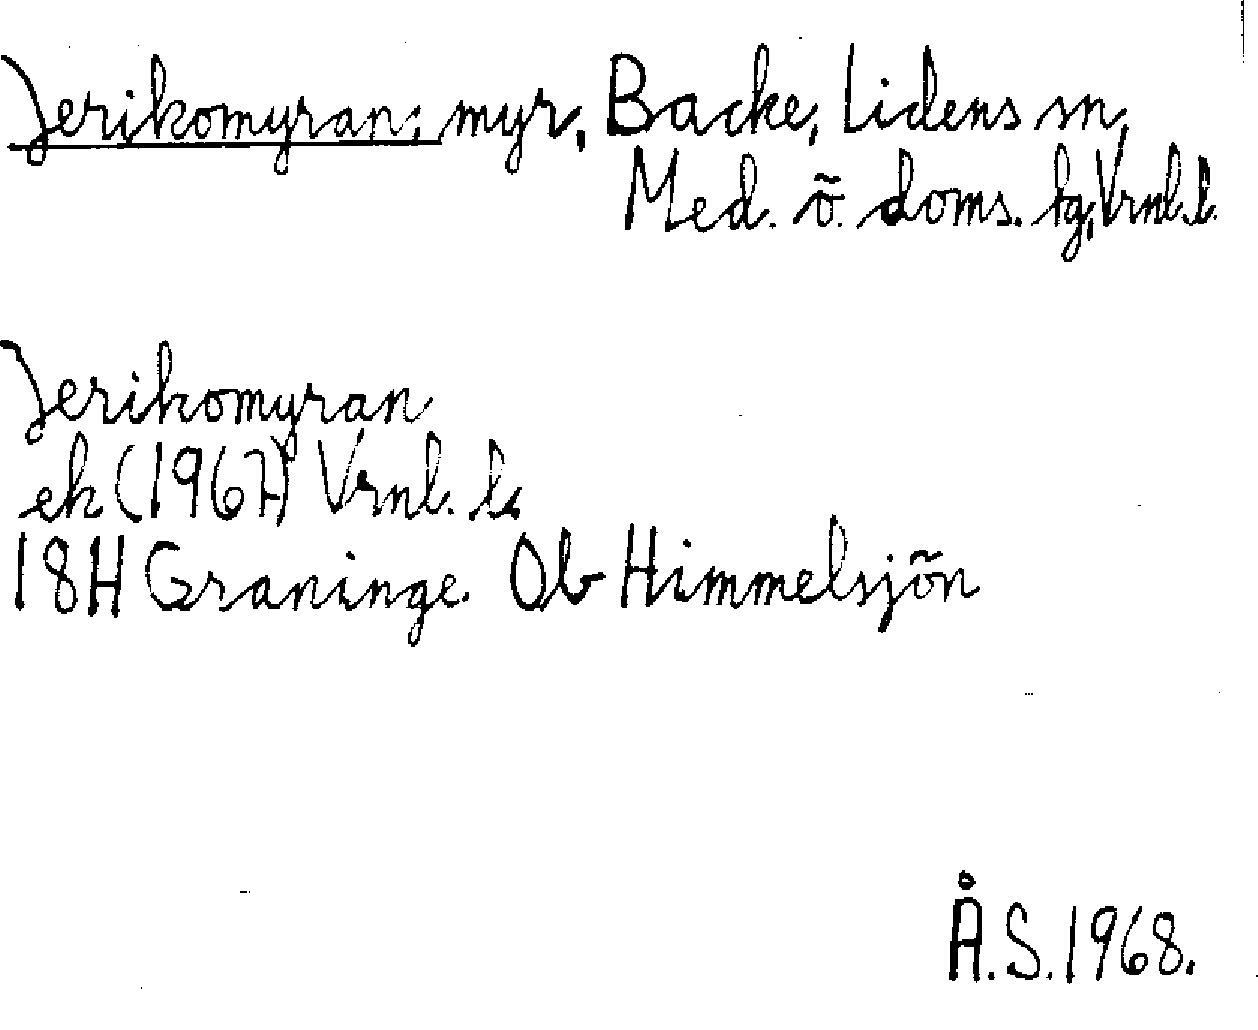 Jerikomyran; myr, Backe, Lidens sn,
Med. ö. doms. hg, Vrnl. l.
Jerikomyran
ek (1967) Vrnl. l.
18H Graninge. Ob Himmelsjön
Å.S. 1968.